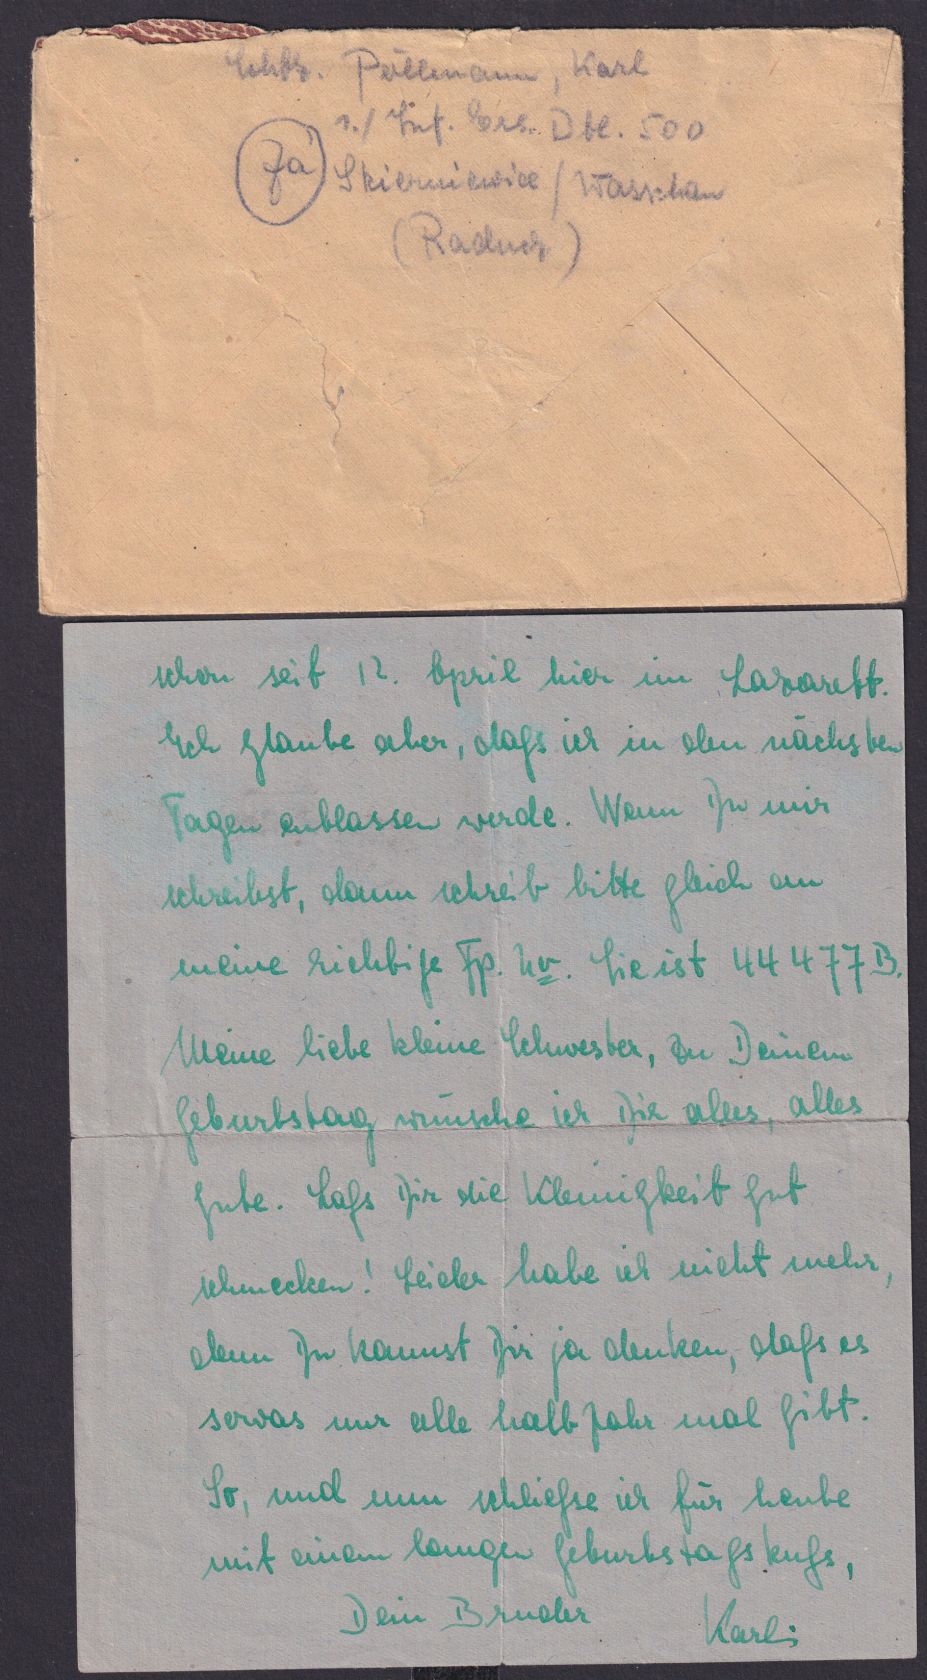 Schtz. Pöllmann, Karl
1./ Inf. Ers. Btl. 500
Skierniewice / Warschau
(Raducz)
schon seit 12. April hier im Lazarett.
Ich glaube aber, dass ich in den nächsten
Tagen entlassen werde. Wenn Du mir
schreibst, dann schreib bitte gleich an
meine richtige Fp. Nr. Sie ist 44477B.
Meine liebe kleine Schwester, zu Deinem
Geburtstag wünsche ich Dir alles, alles
Gute. Lass Dir die Kleinigkeit gut
schmecken! Leider habe ich nicht mehr,
denn Du kannst Dir ja denken, dass es
sowas nur alle halb Jahr mal gibt.
So, und nun schliesse ich für heute
mit einem langen Geburtstagskuss,
Dein Bruder Karli